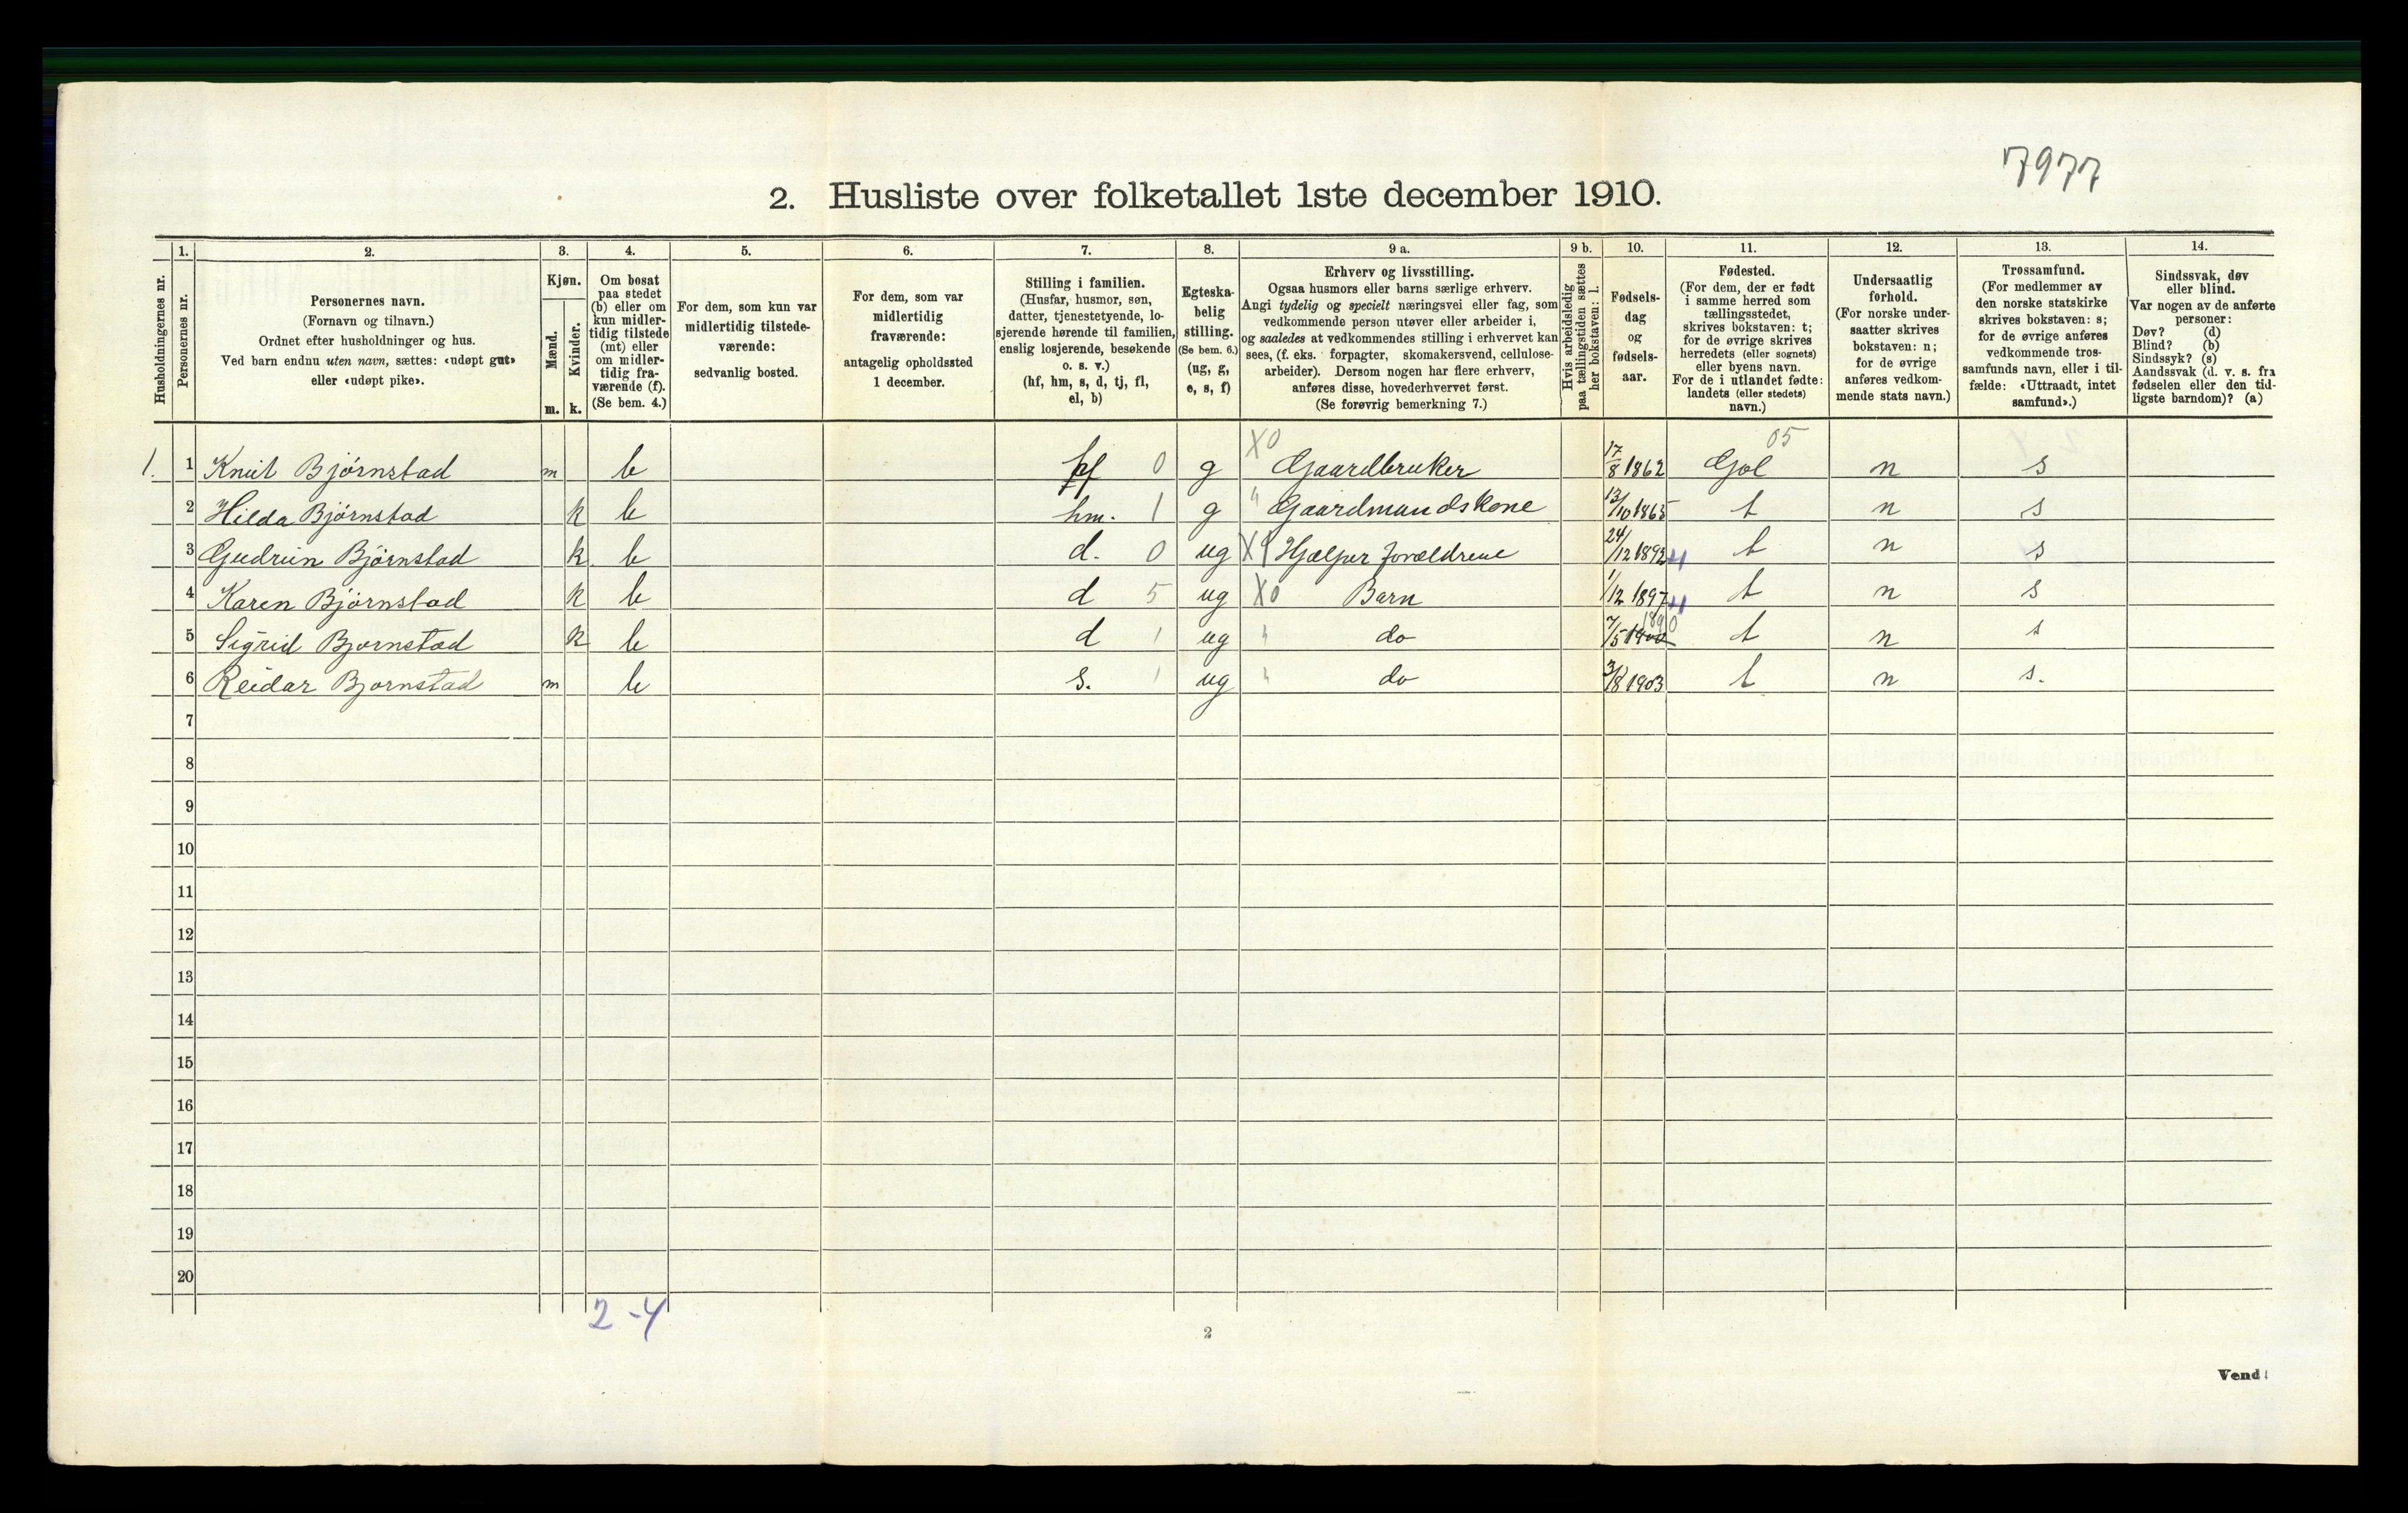 7977
2. Husliste over folketallet 1ste december 1910.
Husholdningernes nr.
1.
Personernes nr.
2.
Personernes navn.
(Fornavn og tilnavn.)
Ordnet efter husholdninger og hus.
Ved barn endnu uten navn, sættes: «udøpt gut»
eller «udøpt pike».
3.
Kjøn.
Mænd.
m.
Kvinder.
k.
4.
Om bosat
paa stedet
(b) eller om
kun midler-
tidig tilstede
(mt) eller
om midler-
tidig fra-
værende (f).
(Se bem. 4.)
5.
For dem, som kun var
midlertidig tilstede-
værende:
sedvanlig bosted.
6.
For dem, som var
midlertidig
fraværende:
antagelig opholdssted
1 december.
7.
Stilling i familien.
(Husfar, husmor, søn,
datter, tjenestetyende, lo-
sjerende hørende til familien,
enslig losjerende, besøkende
o. s. v.)
(hf, hm, s, d, tj, fl,
el, b)
8.
Egteska-
belig
stilling.
(Se bem. 6.)
(ug, g,
e, s, f)
9 a.
Erhverv og livsstilling.
Ogsaa husmors eller barns særlige erhverv.
Angi tydelig og specielt næringsvei eller fag, som
vedkommende person utøver eller arbeider i,
og saaledes at vedkommendes stilling i erhvervet kan
sees, (f. eks. forpagter, skomakersvend, cellulose-
arbeider). Dersom nogen har flere erhverv,
anføres disse, hovederhvervet først.
(Se forøvrig bemerkning 7.)
9 b.
Hvis arbeidsledig
paa tællingstiden sættes
her bokstaven: l.
10.
Fødsels-
dag
og
fødsels-
aar.
11.
Fødested.
(For dem, der er født
i samme herred som
tællingsstedet,
skrives bokstaven: t;
for de øvrige skrives
herredets (eller sognets)
eller byens navn.
For de i utlandet fødte:
landets (eller stedets)
navn.)
12.
Undersaatlig
forhold.
(For norske under-
saatter skrives
bokstaven: n;
for de øvrige
anføres vedkom-
mende stats navn.)
13.
Trossamfund.
(For medlemmer av
den norske statskirke
skrives bokstaven: s;
for de øvrige anføres
vedkommende tros-
samfunds navn, eller i til-
fælde: «Uttraadt, intet
samfund».)
14.
Sindssvak, døv
eller blind.
Var nogen av de anførte
personer:
Døv? (d)
Blind? (b)
Sindssyk? (s)
Aandssvak (d. v. s. fra
fødselen eller den tid-
ligste barndom)? (a)
1. 1 Knut Bjørnstad m b hf 0 g X0 Gaardbruker 17/8 1862 Gol 05 n s
2 Hilda Bjørnstad k b hm. 1 g " Gaardmandskone 13/10 1865 t n s
3 Gudrun Bjørnstad k b d. 0 ug Hjælper forældrene 24/12 1892 t n s
4 Karen Bjørnstad k b d 5 ug X0 Barn 1/12 1897 t n s
5 Sigrid Bjornstad k b d 1 ug " do 7/5 1900 t n s
6 Reidar Bjornstad m b s. 1 ug " do 3/8 1903 t n s.
7
8
9
10
11
12
13
14
15
16
17
18
19
20
2-4
2
Vend!